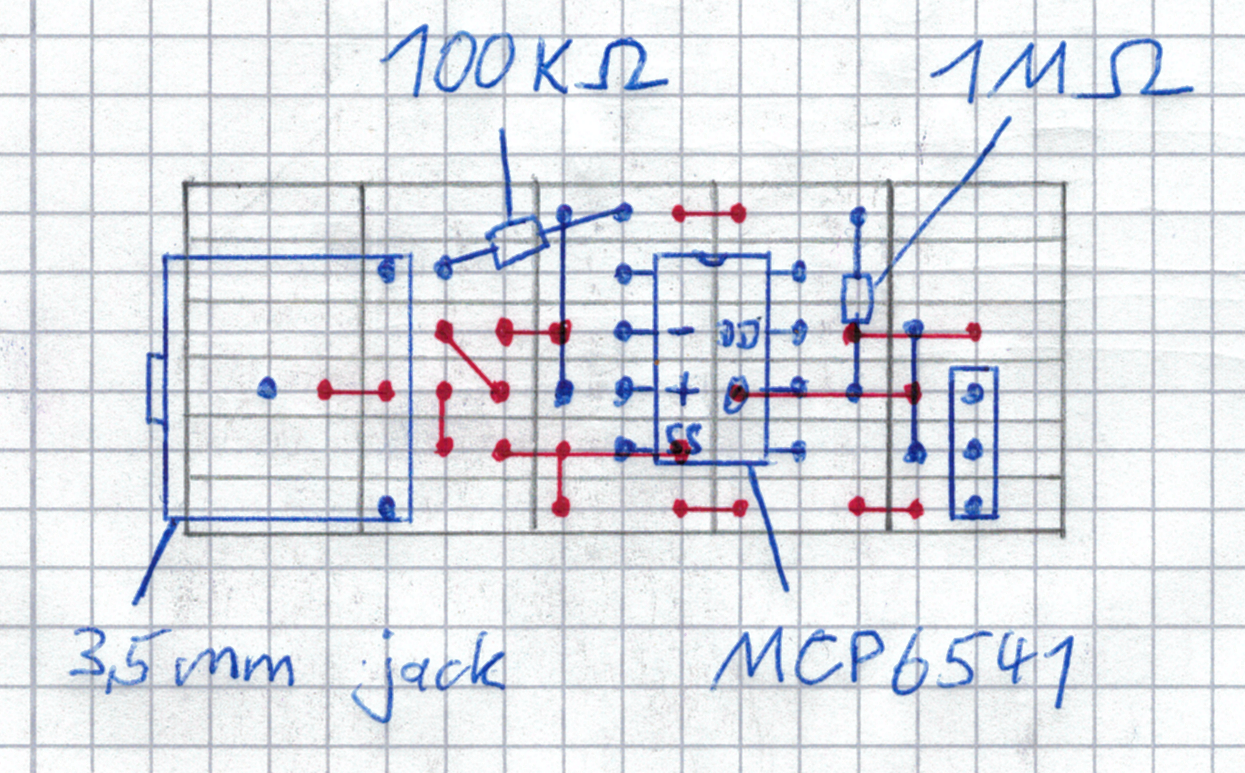 100KΩ 1MΩ
- DD
+ O
SS
3,5mm jack MCP6541